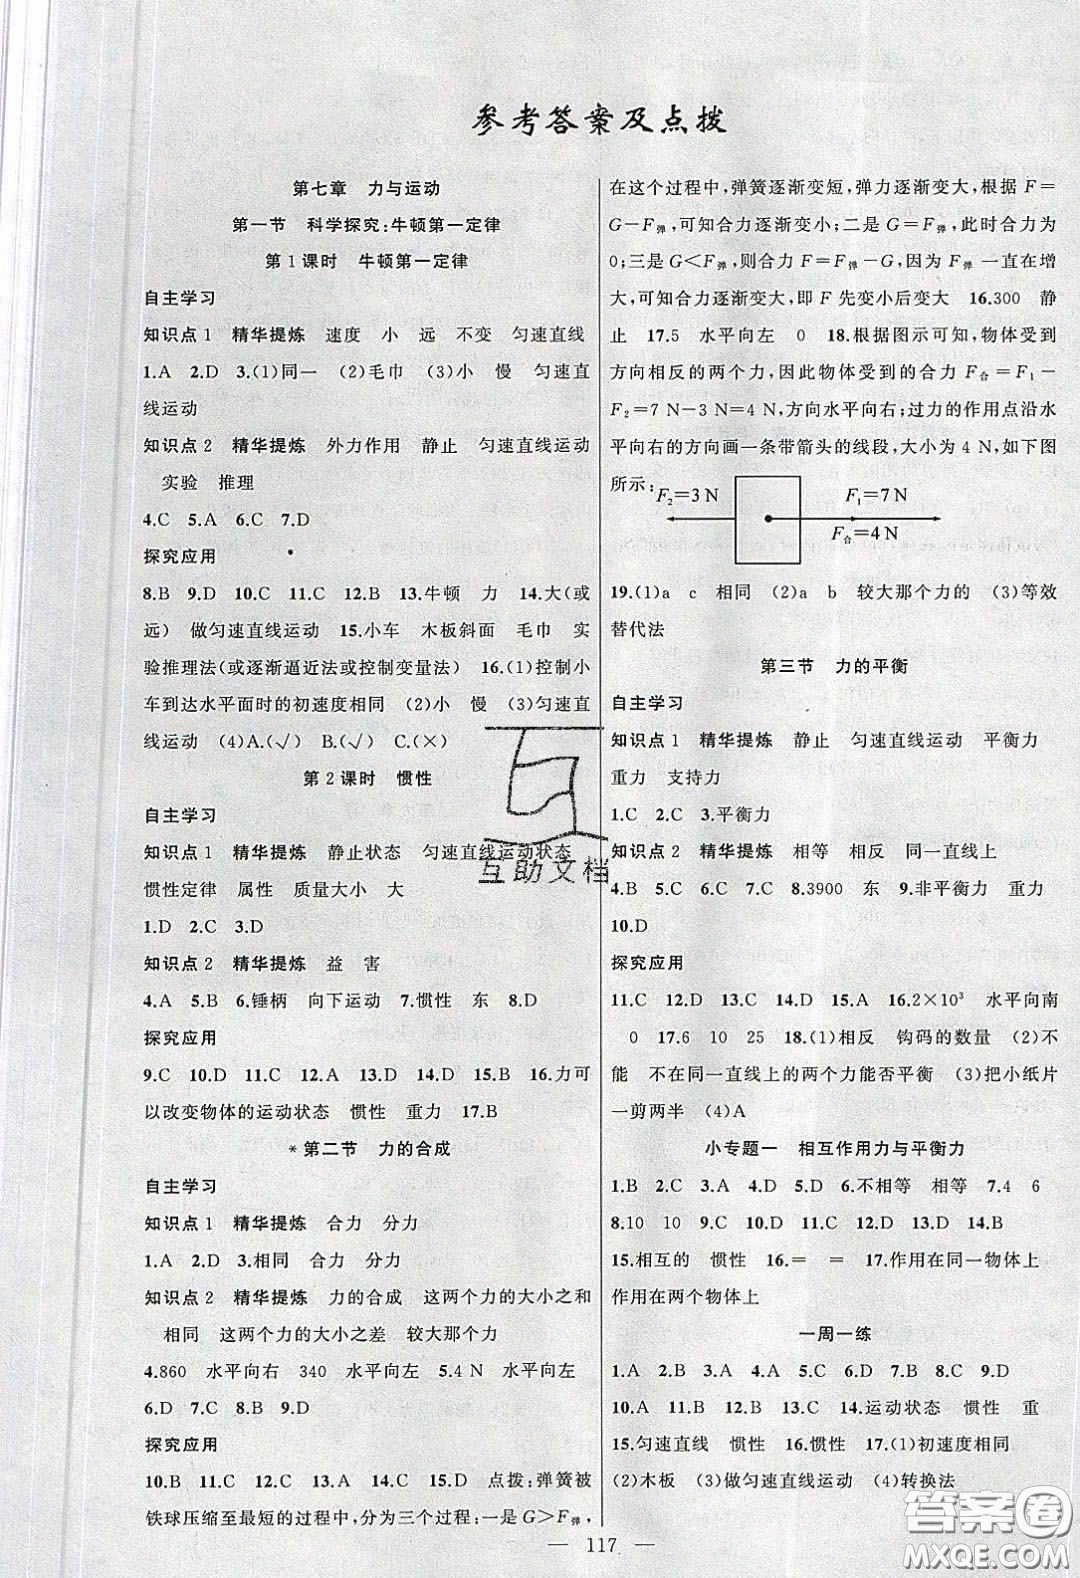 参考答案及点拨
第七章　力与运动
第一节　科学探究:牛顿第一定律
第1课时　牛顿第一定律
自主学习
知识点1　精华提炼　速度　小　远　不变　匀速直线
1.A　2.D　3.(1)同一　(2)毛巾　(3)小　慢　匀速直
线运动
知识点2　精华提炼　外力作用　静止　匀速直线运动
实验　推理
4.C　5.A　6.C　7.D
探究应用
8.B　9.D　10.C　11.C　12.B　13.牛顿　力　14.大(或
远)　做匀速直线运动　15.小车　木板斜面　毛巾　实
验推理法(或逐渐逼近法或控制变量法)　16.(1)控制小
车到达水平面时的初速度相同　(2)小　慢　(3)匀速直
线运动　(4)A.(√)　B.(√)　C.(×)
第2课时　惯性
自主学习
知识点1　精华提炼　静止状态　匀速直线运动状态
惯性定律　属性　质量大小　大
1.D　2.C　3.D
知识点2　精华提炼　益　害
4.A　5.B　6.锤柄　向下运动　7.惯性　东　8.D
探究应用
9.C　10.D　11.C　12.A　13.D　14.D　15.B　16.力可
以改变物体的运动状态　惯性　重力　17.B
*第二节　力的合成
自主学习
知识点1　精华提炼　合力　分力
1.A　2.D　3.相同　合力　分力
知识点2　精华提炼　力的合成　这两个力的大小之和
相同　这两个力的大小之差　较大那个力
4.860　水平向右　340　水平向左　5.4 N　水平向左
6.D　7.C　8.B　9.D
探究应用
10.B　11.C　12.B　13.A　14.C　15.D　点拨:弹簧被
铁球压缩至最短的过程中,分为三个过程:一是G＞F弹,
在这个过程中,弹簧逐渐变短,弹力逐渐变大,根据 F＝
G－F弹,可知合力逐渐变小;二是 G＝F弹,此时合力为
0;三是G＜F弹,则合力 F＝F弹－G,因为 F弹 一直在增
大,可知合力逐渐变大,即 F 先变小后变大　16.300　静
止　17.5　水平向左　0　18.根据图示可知,物体受到
方向相反的两个力,因此物体受到的合力 F合＝F1－
F2＝7 N－3 N＝4 N,方向水平向右;过力的作用点沿水
平向右的方向画一条带箭头的线段,大小为 4 N,如下图
所示:
F2＝3 N　F1＝7 N
F合＝4 N
19.(1)a　c　相同　(2)a　b　较大那个力的　(3)等效
替代法
第三节　力的平衡
自主学习
知识点1　精华提炼　静止　匀速直线运动　平衡力
重力　支持力
1.C　2.C　3.平衡力
知识点2　精华提炼　相等　相反　同一直线上
4.B　5.C　6.C　7.C　8.3900　东　9.非平衡力　重力
10.D
探究应用
11.C　12.D　13.D　14.D　15.A　16.2×10³　水平向南
0　17.6　10　25　18.(1)相反　钩码的数量　(2)不
能　不在同一直线上的两个力能否平衡　(3)把小纸片
一剪两半　(4)A
小专题一　相互作用力与平衡力
1.B　2.C　3.A　4.D　5.D　6.不相等　相等　7.4　6
8.10　10　9.C　10.D　11.C　12.D　13.D　14.B
15.相互的　惯性　16.＝　＝　17.作用在同一物体上
作用在两个物体上
一周一练
1.A　2.B　3.A　4.D　5.C　6.D　7.B　8.C　9.D
10.A　11.B　12.B　13.C　14.运动状态　惯性　重
15.匀速直线　惯性　16.惯性　17.(1)初速度相同
(2)木板　(3)做匀速直线运动　(4)转换法
— 117 —
互助文档
答案圈
MXQE.COM